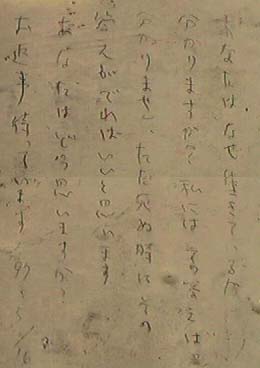 あなたは なぜ生きているか
分かりますか? 私には その答えは
分かりません、ただ死ぬ時にその
答えがでればいいと思います
あなたはどう思いますか?
お返事待っています